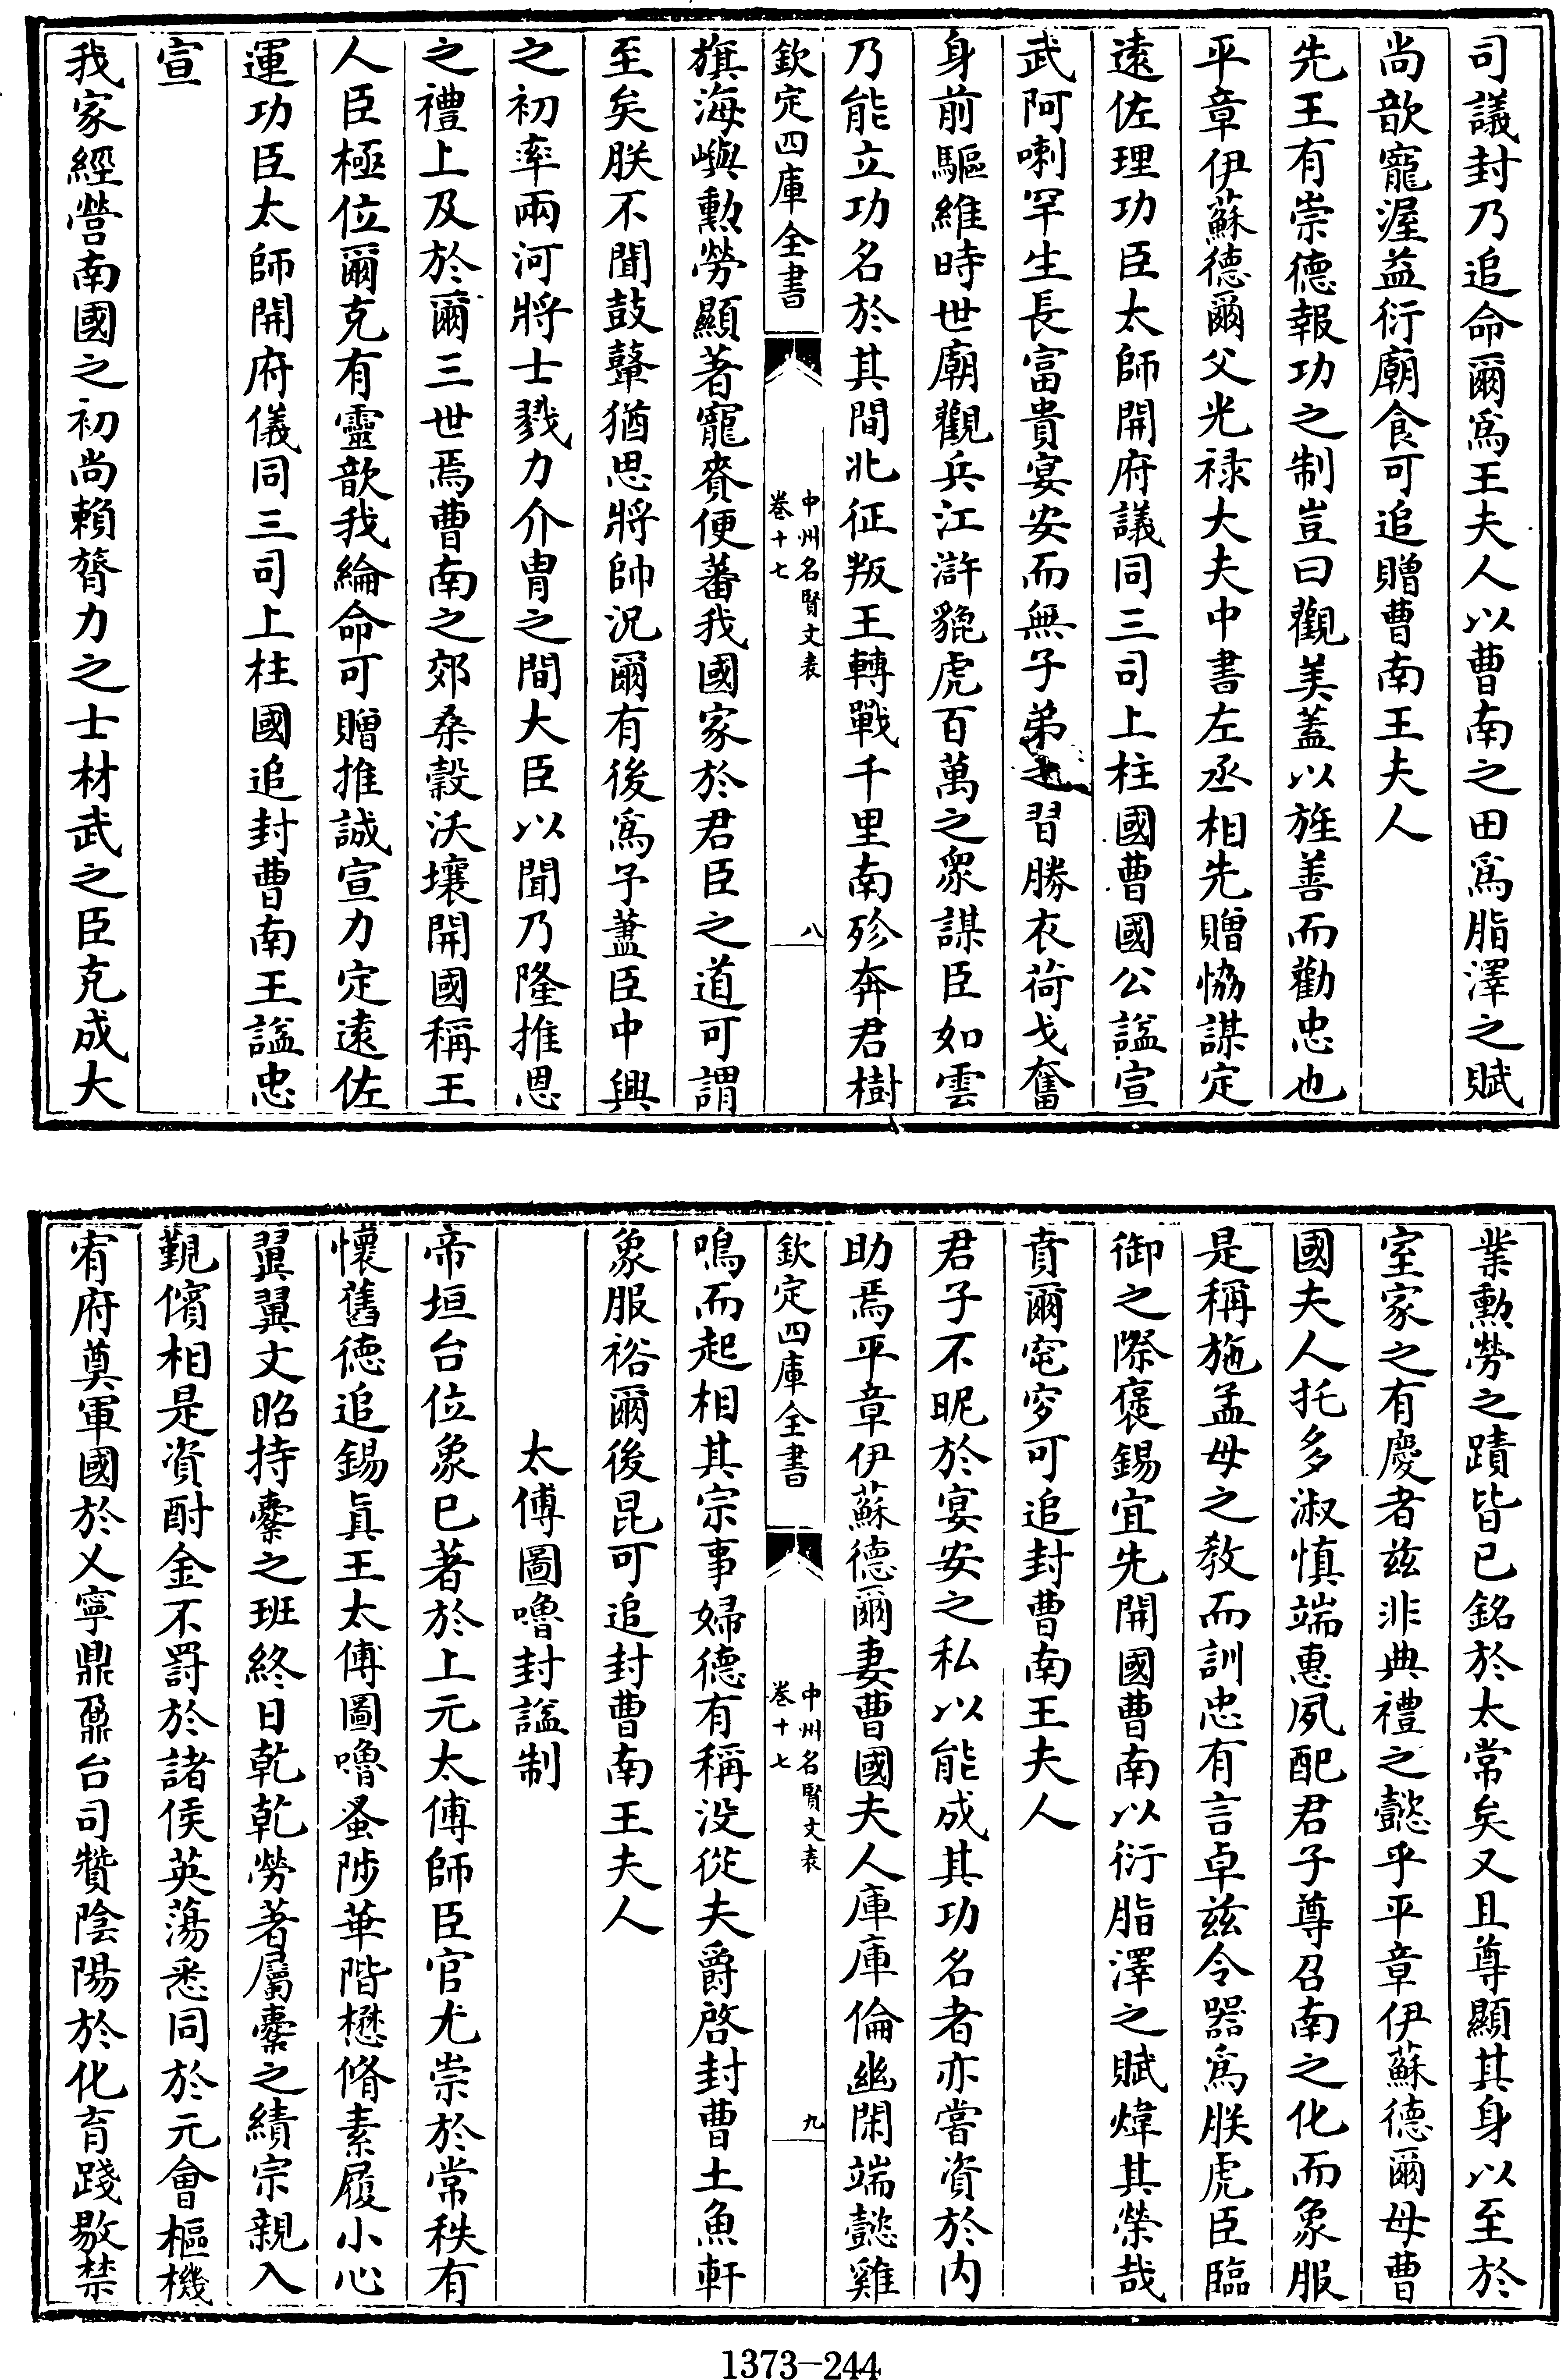 司議封乃追命爾爲王夫人以曹南之田爲脂澤之賦
尚歆寵渥益衍廟食可追贈曹南王夫人
先王有崇德報功之制豈曰觀美蓋以旌善而勸忠也
平章伊蘇德爾父光禄大夫中書左丞相先贈恊謀定
遠佐理功臣太師開府議同三司上柱國曹國公諡宣
武阿喇罕生長富貴宴安而無子弟之習勝衣荷戈奮
身前驅維時世廟觀兵江滸貔虎百萬之衆謀臣如雲
乃能立功名於其間北征叛王轉戰千里南殄奔君樹
欽定四庫全書
中州名賢文表
卷十七
八
旗海嶼勳勞顯著寵賚便蕃我國家於君臣之道可謂
至矣朕不聞鼓鼙猶思將帥況爾有後爲予藎臣中興
之初率兩河將士戮力介胄之間大臣以聞乃隆推恩
之禮上及於爾三世焉曹南之郊桑榖沃壤開國稱王
人臣極位爾克有靈歆我綸命可贈推誠宣力定遠佐
運功臣太師開府儀同三司上柱國追封曹南王諡忠
宣
我家經營南國之初尚賴膂力之士材武之臣克成大
業勳勞之蹟皆已銘於太常矣又且尊顯其身以至於
室家之有慶者兹非典禮之懿乎平章伊蘇德爾母曹
國夫人托多淑慎端惠夙配君子尊召南之化而象服
是稱施孟母之教而訓忠有言卓兹令器爲朕虎臣臨
御之際褒錫宜先開國曹南以衍脂澤之賦煒其榮哉
賁爾窀穸可追封曹南王夫人
君子不昵於宴安之私以能成其功名者亦嘗資於内
助焉平章伊蘇德爾妻曹國夫人庫庫倫幽閑端懿雞
欽定四庫全書
中州名賢文表
卷十七
九
鳴而起相其宗事婦德有稱没從夫爵啓封曹土魚軒
象服裕爾後昆可追封曹南王夫人
太傅圖嚕封諡制
帝垣台位象已著於上元太傅師臣官尤崇於常秩有
懷舊德追錫真王太傅圖嚕蚤陟華階懋脩素履小心
翼翼文昭持橐之班終日乾乾勞著屬櫜之績宗親入
覲儐相是資酎金不罸於諸侯英蕩悉同於元會樞機
宥府奠軍國於乂寧鼎鼐台司贊陰陽於化育踐敭禁
1373—244